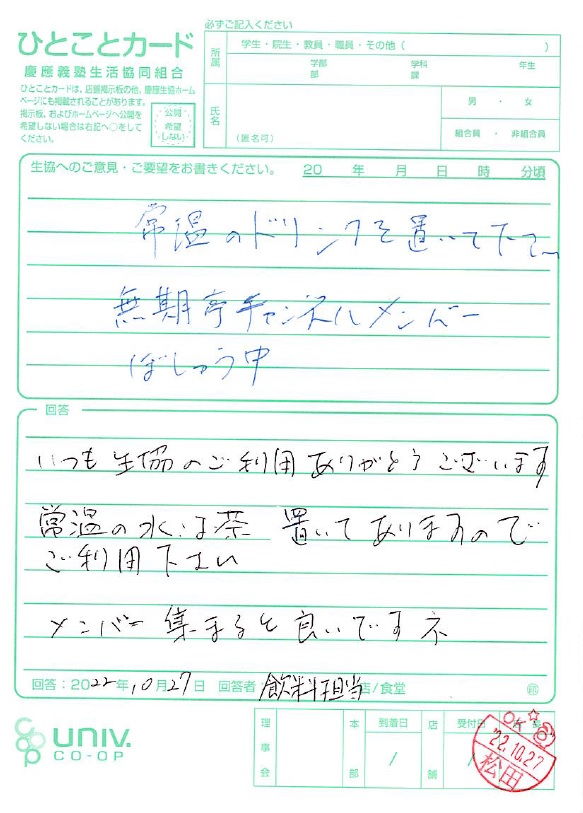 必ずご記入ください
ひとことカード
慶應義塾生活協同組合
ひとことカードは、店舗掲示板の他、慶應生協ホームページにも掲載されることがあります。
掲示板、およびホームページへ公開を
希望しない場合は右記へ○をして
ください。
公開
希望
しない
所属
学生・院生・教員・職員・その他（ ）
学部 学科 年生
部 課
氏名
（匿名可）
男 ・ 女
組合員 ・ 非組合員
生協へのご意見・ご要望をお書きください。 20 年 月 日 時 分頃
常温のドリンクを置いて下さい
無期亭チャンネルメンバー
ぼしゅう中
回答
いつも生協のご利用ありがとうございます
常温の水・お茶 置いてありますので
ご利用下さい
メンバー集まると良いですネ
回答：2022年10月27日 回答者： 飲料担当 店/食堂
univ.
CO-OP
理事会
本部
到着日
/
店舗
受付日
/
OK
'22.10.27
松田